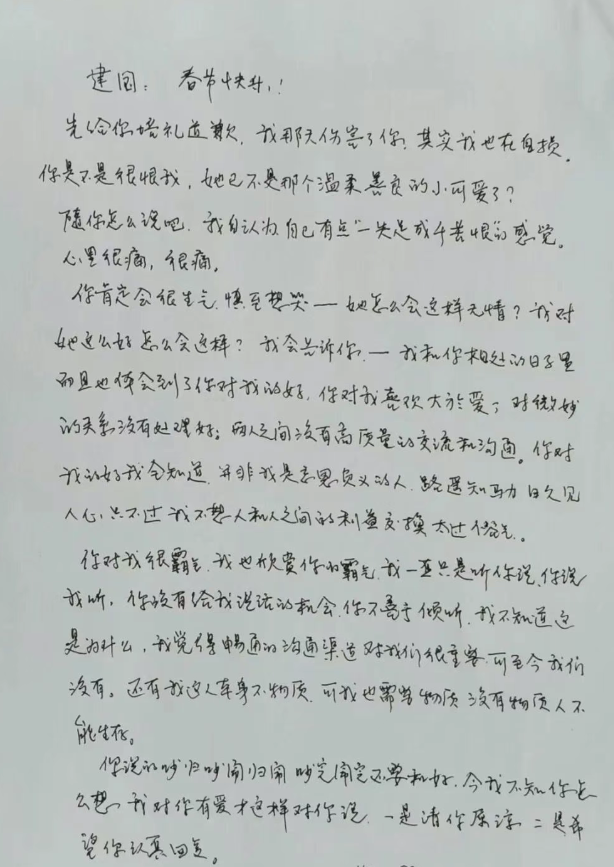 建国：春节快乐！
先给你赔礼道歉，我那天伤害了你，其实我也在自损。
你是不是很恨我，她已不是那个温柔善良的小可爱了？
随你怎么说吧，我自认为自己有点“一失足成千苦恨”的感觉。
心里很痛，很痛。
你肯定会很生气，慎至想哭——她怎么会这样无情？我对
她这么好怎么会这样？我会告诉你，——我和你相处的日子里
而且也体会到了你对我的好，你对我喜欢大於爱，对微妙
的关系没有处理好；两人之间没有高质量的交流和沟通。你对
我的好我全知道，并非我是忘恩负义的人，路遥知马力日久见
人心，只不过我不想人和人之间的利益交换太过俗气。
你对我很霸气，我也欣赏你的霸气，我一直只是听你说，你说
我听，你没有给我说话的机会，你不善于倾听，我不知道这
是为什么，我觉得畅通的沟通渠道对我们很重要，可至今我们
没有。还有我这人本身不物质，可我也需要物质，没有物质人不
能生存。
你说的吵归吵闹归闹，吵完闹完还要和好，今我不知你怎
么想，我对你有爱才这样对你说，一是请你原谅，二是希
望你认真回复。